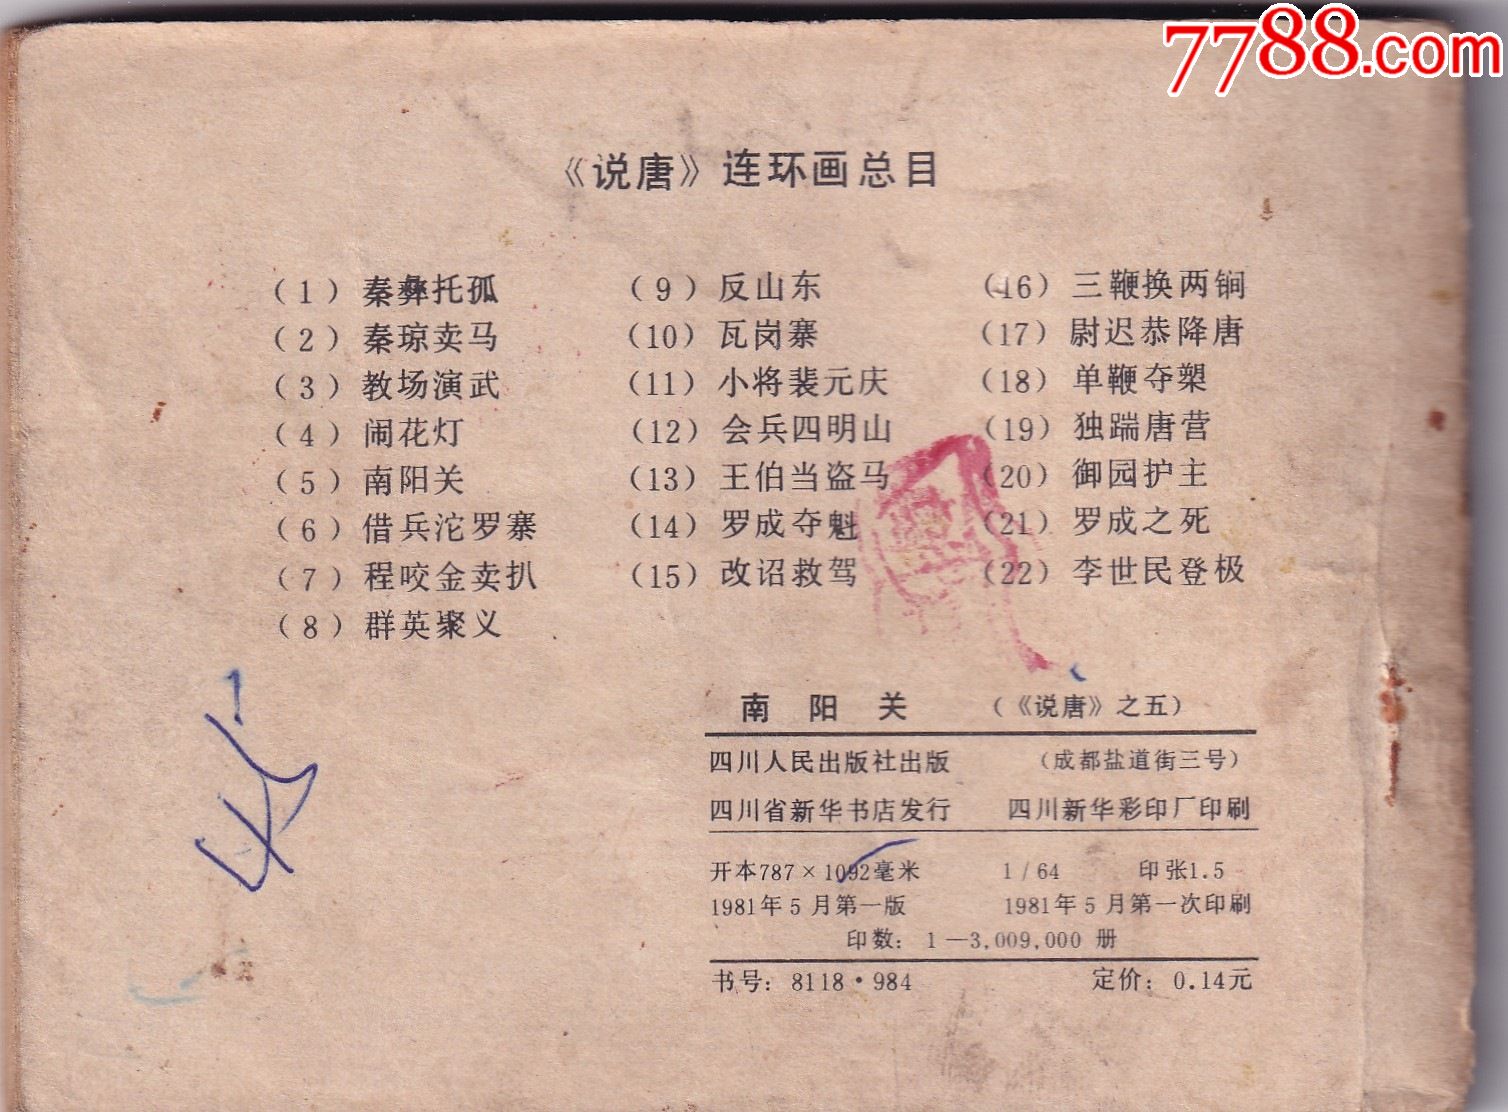 7788.com
《说唐》连环画总目
(1) 秦彝托孤
(2) 秦琼卖马
(3) 教场演武
(4) 闹花灯
(5) 南阳关
(6) 借兵沱罗寨
(7) 程咬金卖扒
(8) 群英聚义
(9) 反山东
(10) 瓦岗寨
(11) 小将裴元庆
(12) 会兵四明山
(13) 王伯当盗马
(14) 罗成夺魁
(15) 改诏救驾
(16) 三鞭换两锏
(17) 尉迟恭降唐
(18) 单鞭夺槊
(19) 独踹唐营
(20) 御园护主
(21) 罗成之死
(22) 李世民登极
南阳关 (《说唐》之五)
四川人民出版社出版 (成都盐道街三号)
四川省新华书店发行 四川新华彩印厂印刷
开本787×1092毫米 1/64 印张1.5
1981年5月第一版 1981年5月第一次印刷
印数：1—3,009,000 册
书号：8118·984 定价：0.14元